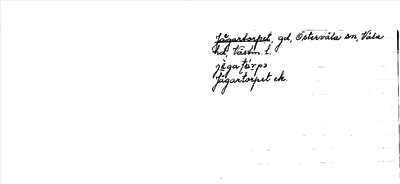 Jägartorpet, gd, Östervåla sn, Våla
hd, Västm. l.
jɛ̀gatårpə
Jägartorpet ek.